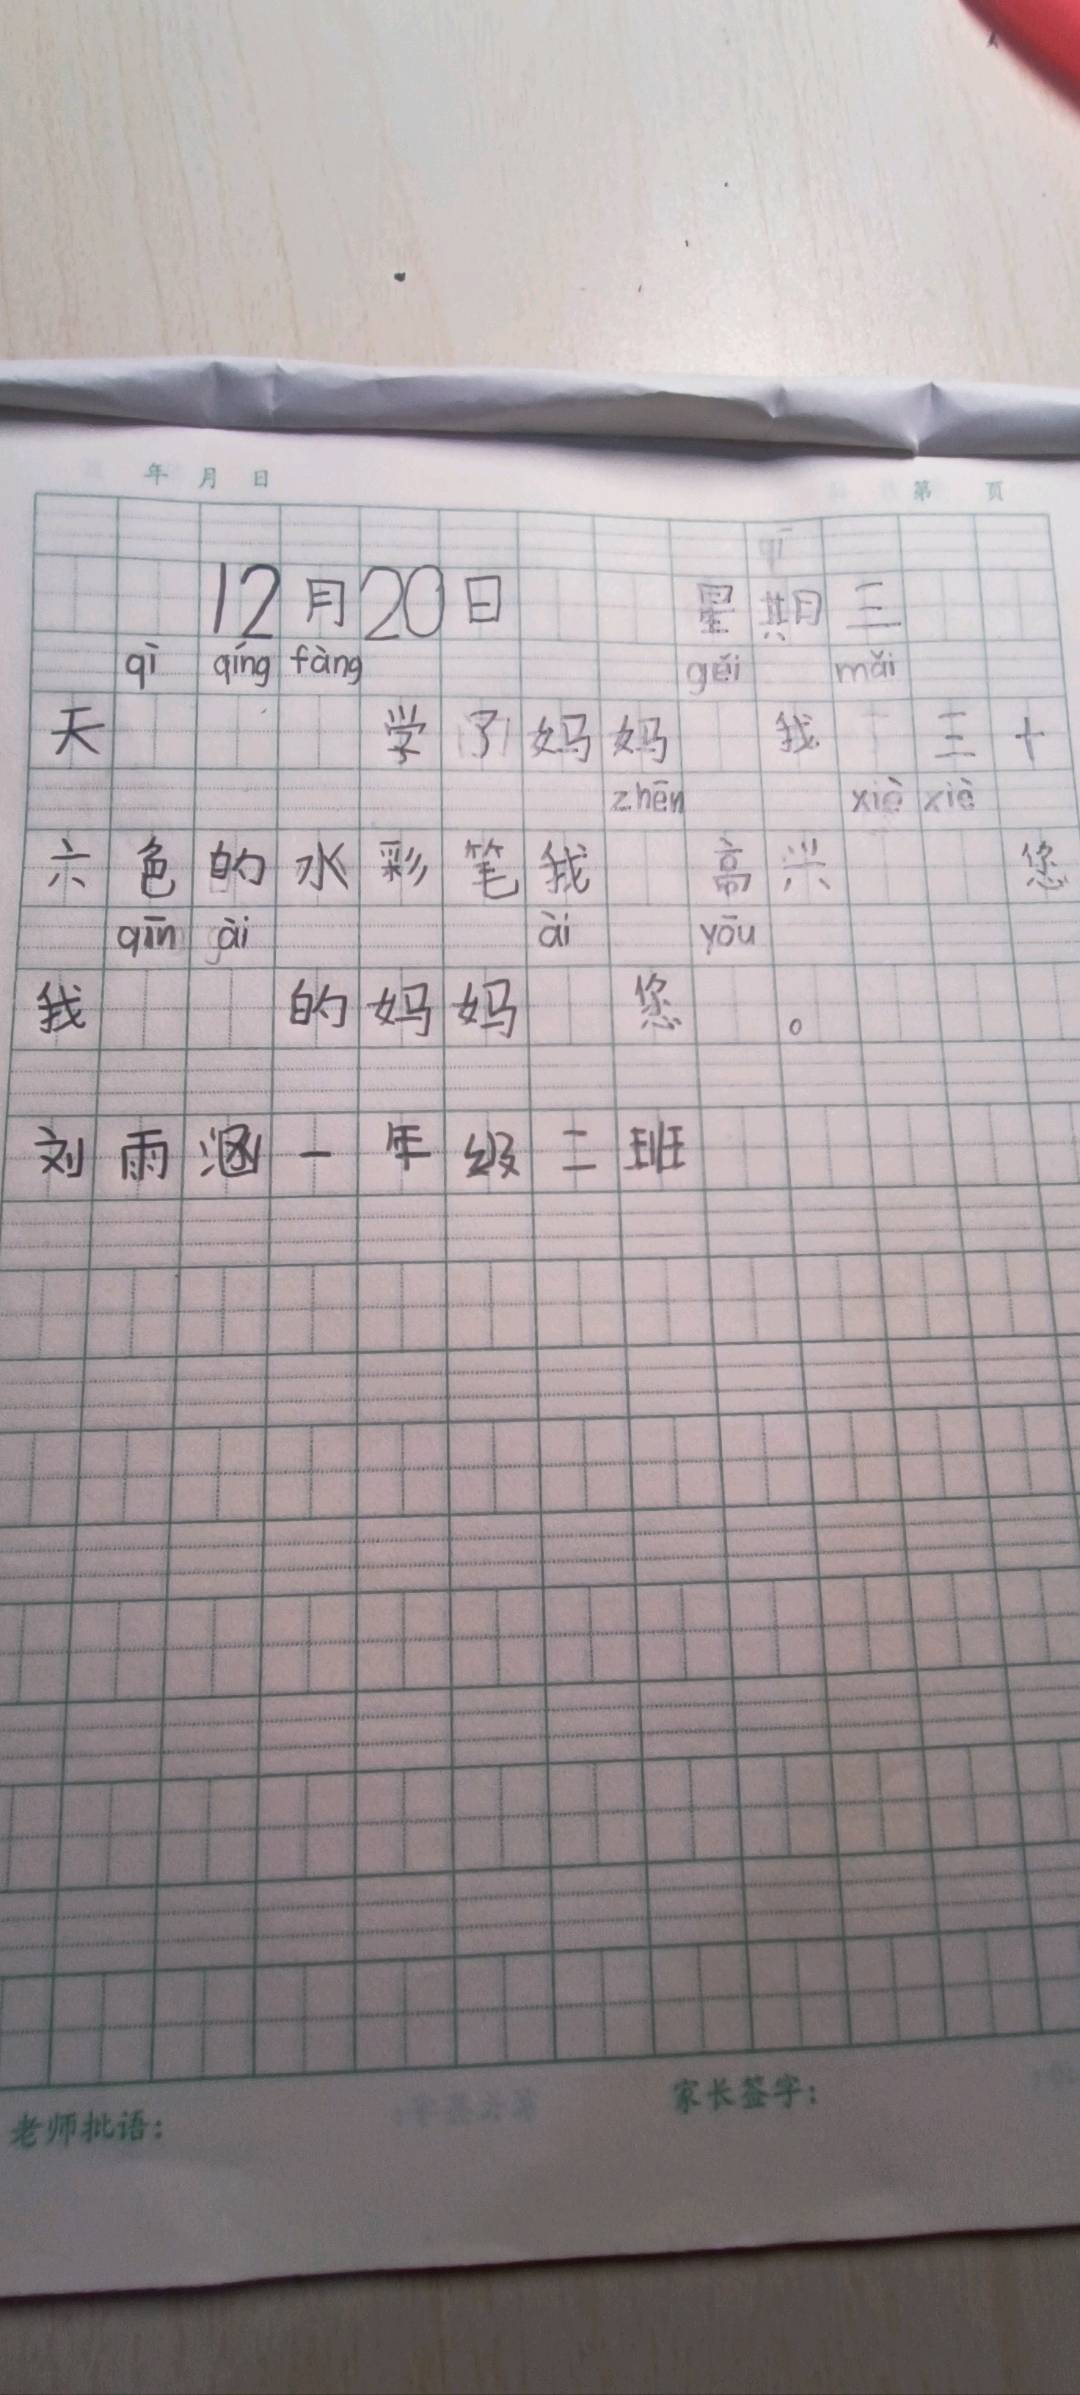 年 月 日 第 页
qī
12月20日 星期三
qì qíng fàng gěi mǎi
天 学了妈妈 我 三十
zhēn xiè xiè
六色的水彩笔我 高兴 您
qīn ài ài yōu
我 的妈妈 您 。
刘雨涵一年级二班
老师批语: 家长签字: